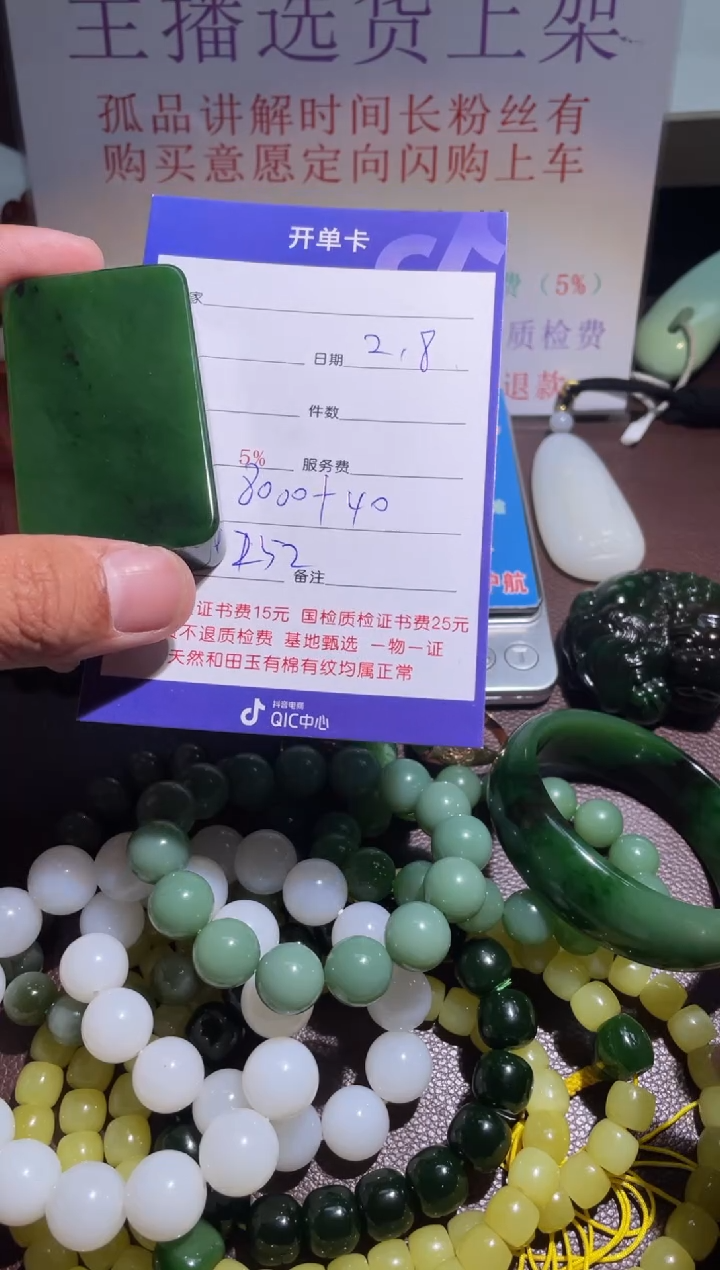 主播选货上架
孤品讲解时间长粉丝有
购买意愿定向闪购上车
费（5%）
质检费
退款
开单卡
家
日期 2.8
件数
5% 服务费
8000+40
252
备注
证书费15元 国检质检证书费25元
不退质检费 基地甄选 一物一证
天然和田玉有棉有纹均属正常
抖音电商
QIC中心
护航